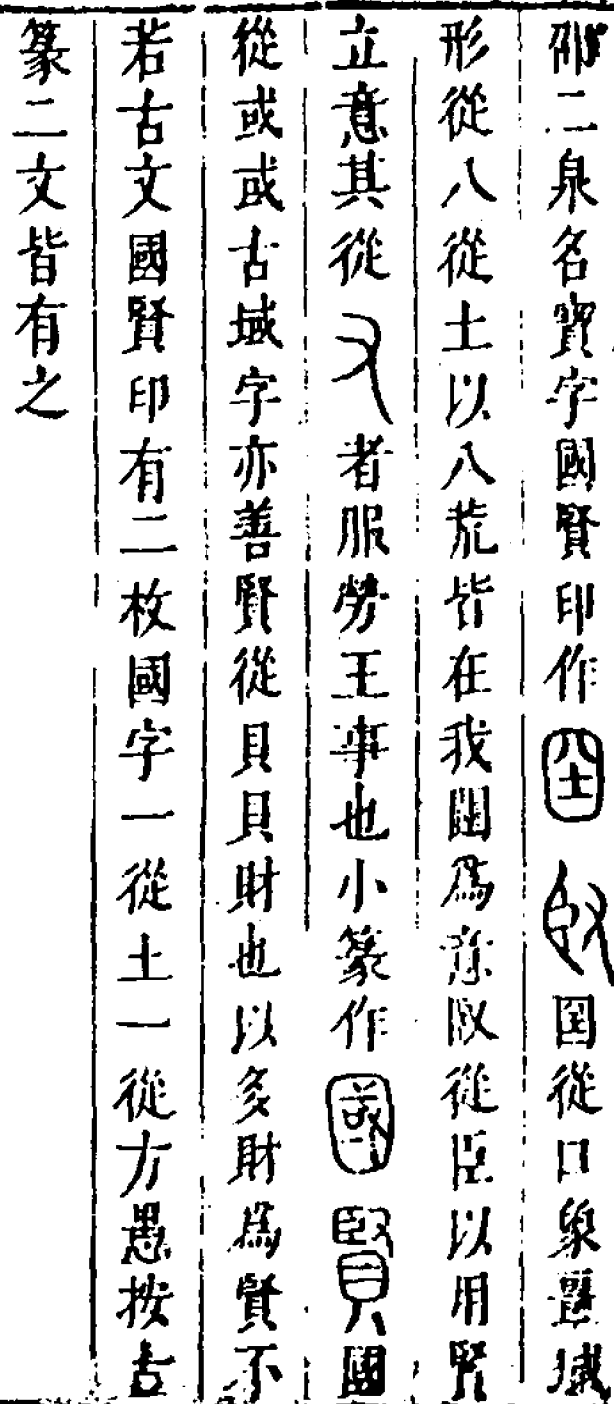 邵二泉名寶字國賢印作 国從口象疆域
形從八從土以八荒皆在我闥為意臤從臣以用賢
立意其從又者服勞王事也小篆作國賢國
從或或古域字亦善賢從貝貝財也以多財為賢不
若古文國賢印有二枚國字一從土一從方愚按古
篆二文皆有之